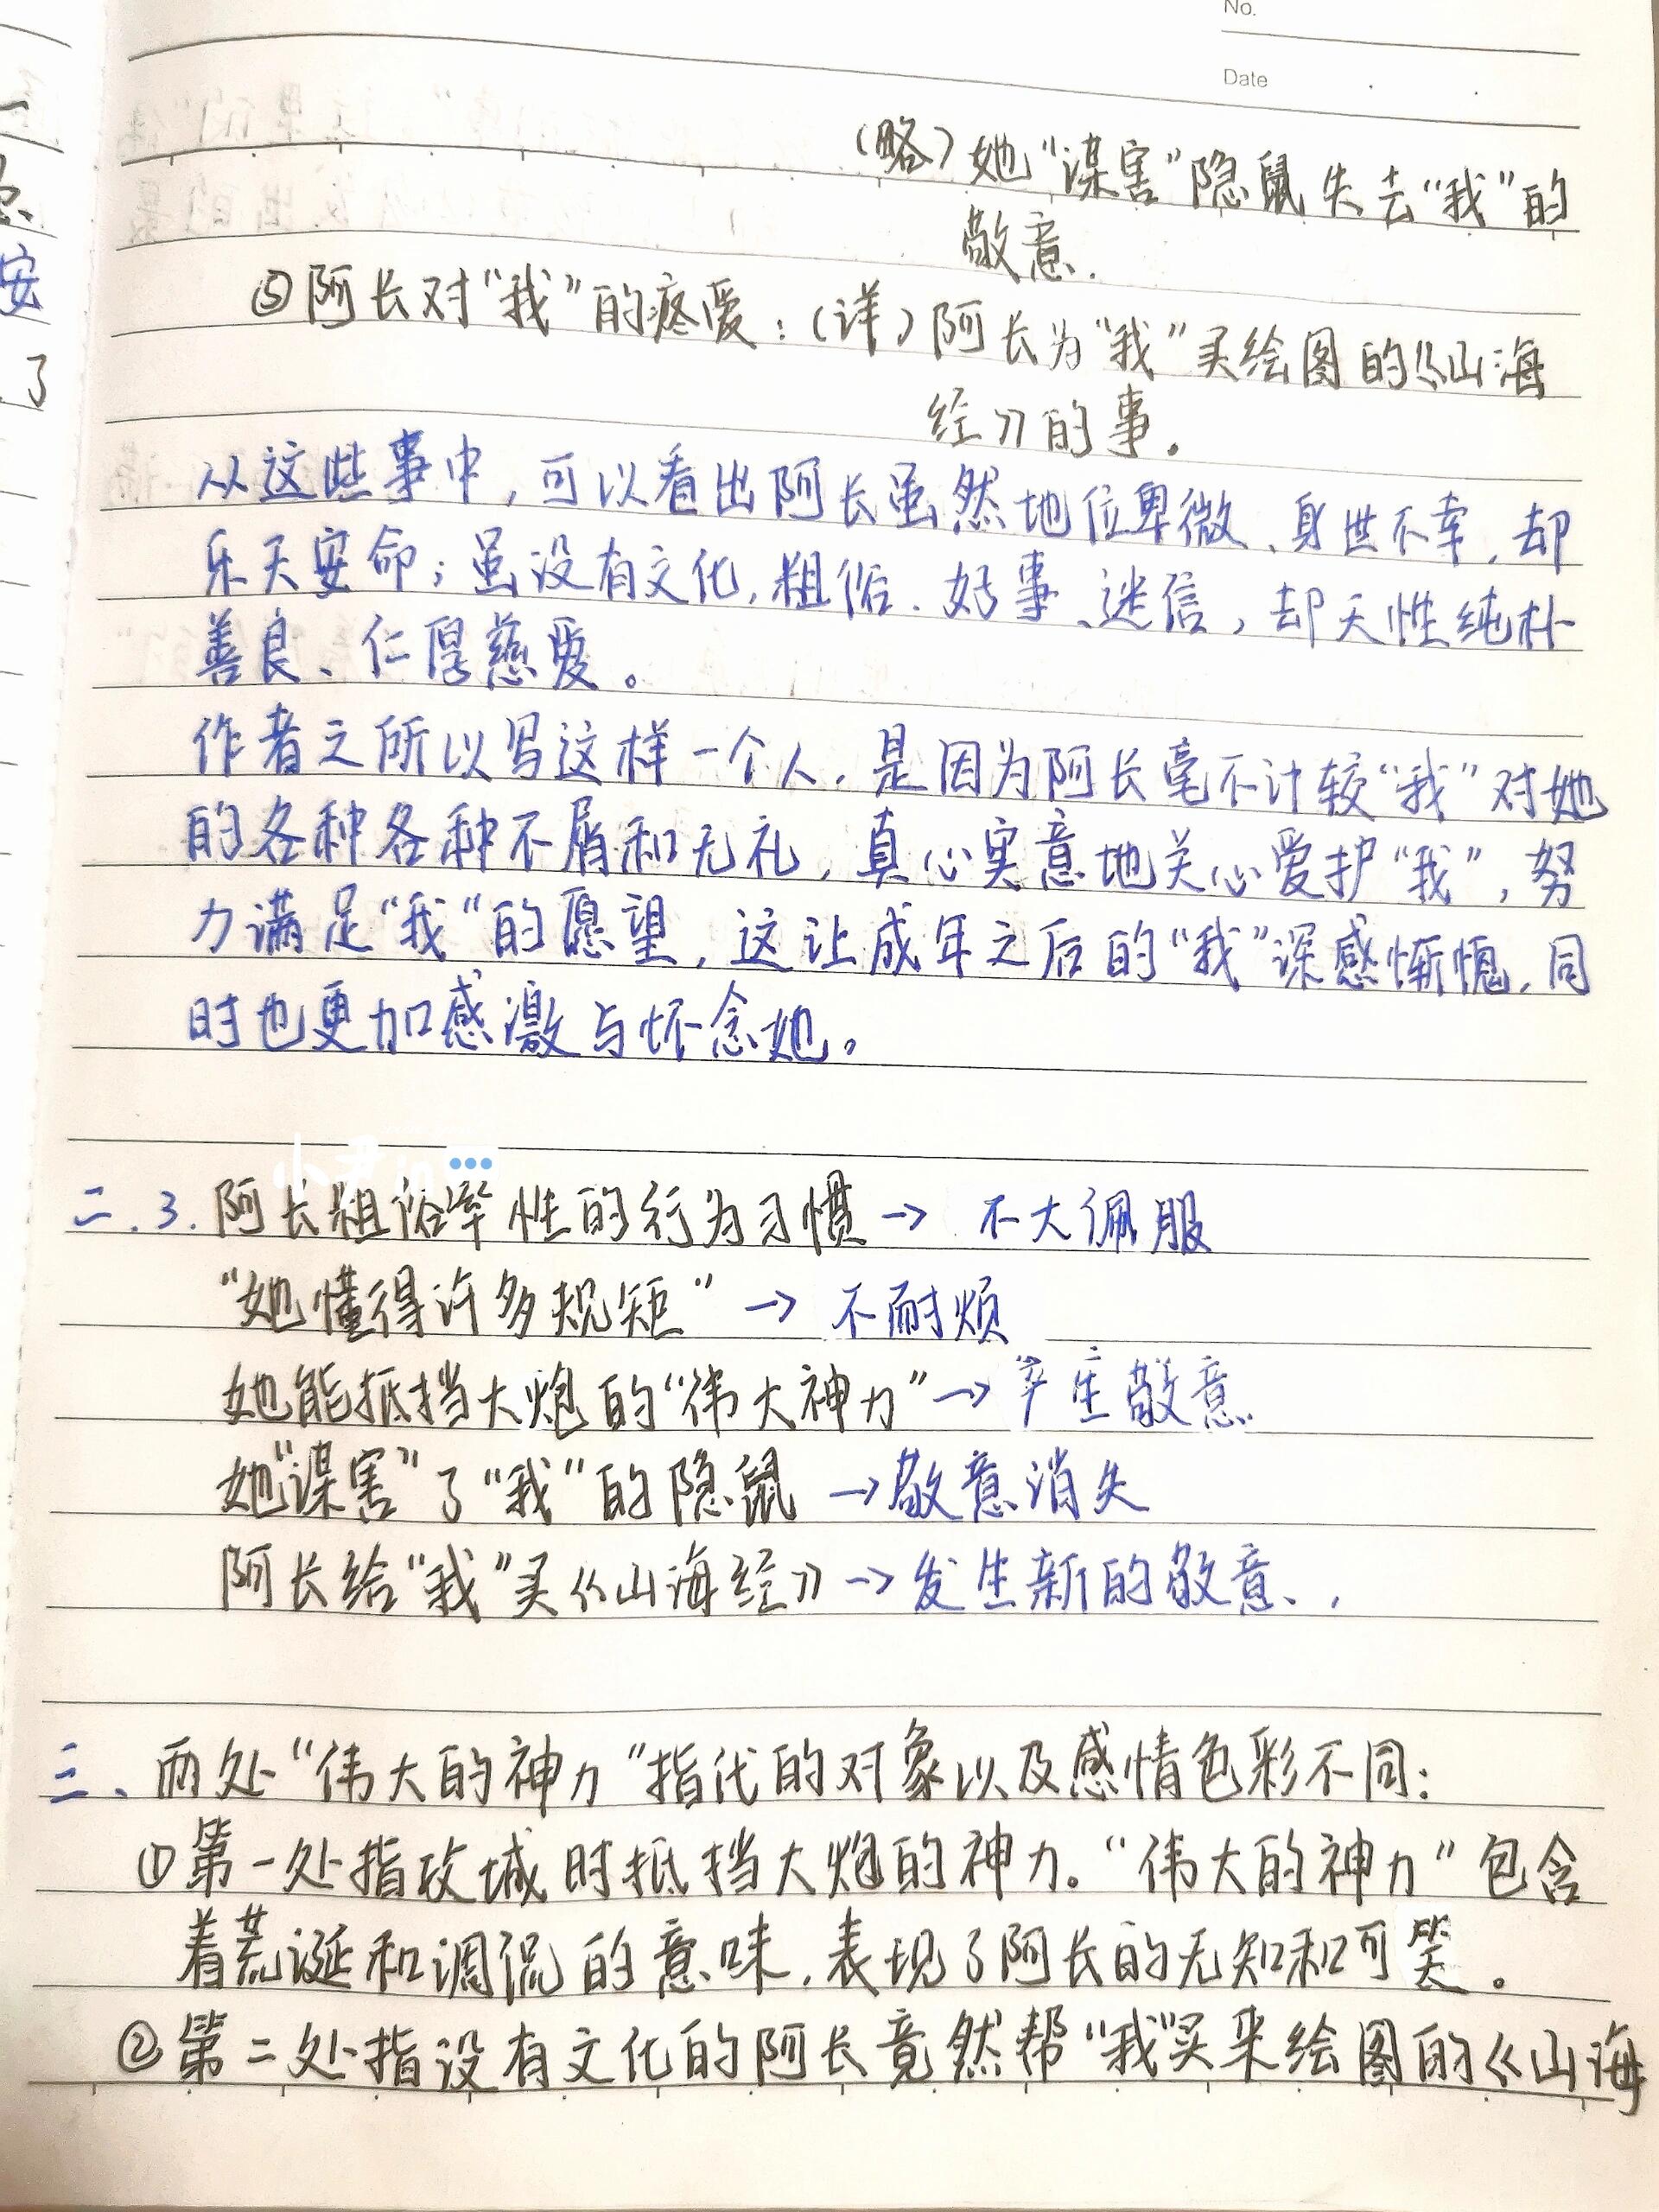 No.
Date
（略）她“谋害”隐鼠失去“我”的
敬意.
⑤阿长对“我”的疼爱：（详）阿长为“我”买绘图的《山海
经》的事。
从这些事中，可以看出阿长虽然地位卑微、身世不幸，却
乐天安命；虽没有文化，粗俗、好事、迷信，却天性纯朴
善良、仁厚慈爱。
作者之所以写这样一个人，是因为阿长毫不计较“我”对她
的各种各种不屑和无礼，真心实意地关心爱护“我”，努
力满足“我”的愿望，这让成年之后的“我”深感惭愧，同
时也更加感激与怀念她。
二.3.阿长粗俗率性的行为习惯→ 不大佩服
“她懂得许多规矩”→ 不耐烦
她能抵挡大炮的“伟大神力”→产生敬意
她“谋害”了“我”的隐鼠→敬意消失
阿长给“我”买《山海经》→发生新的敬意、，
三、两处“伟大的神力”指代的对象以及感情色彩不同：
①第一处指攻城时抵挡大炮的神力。“伟大的神力”包含
着荒诞和调侃的意味，表现了阿长的无知和可笑。
②第二处指没有文化的阿长竟然帮“我”买来绘图的《山海
安
了